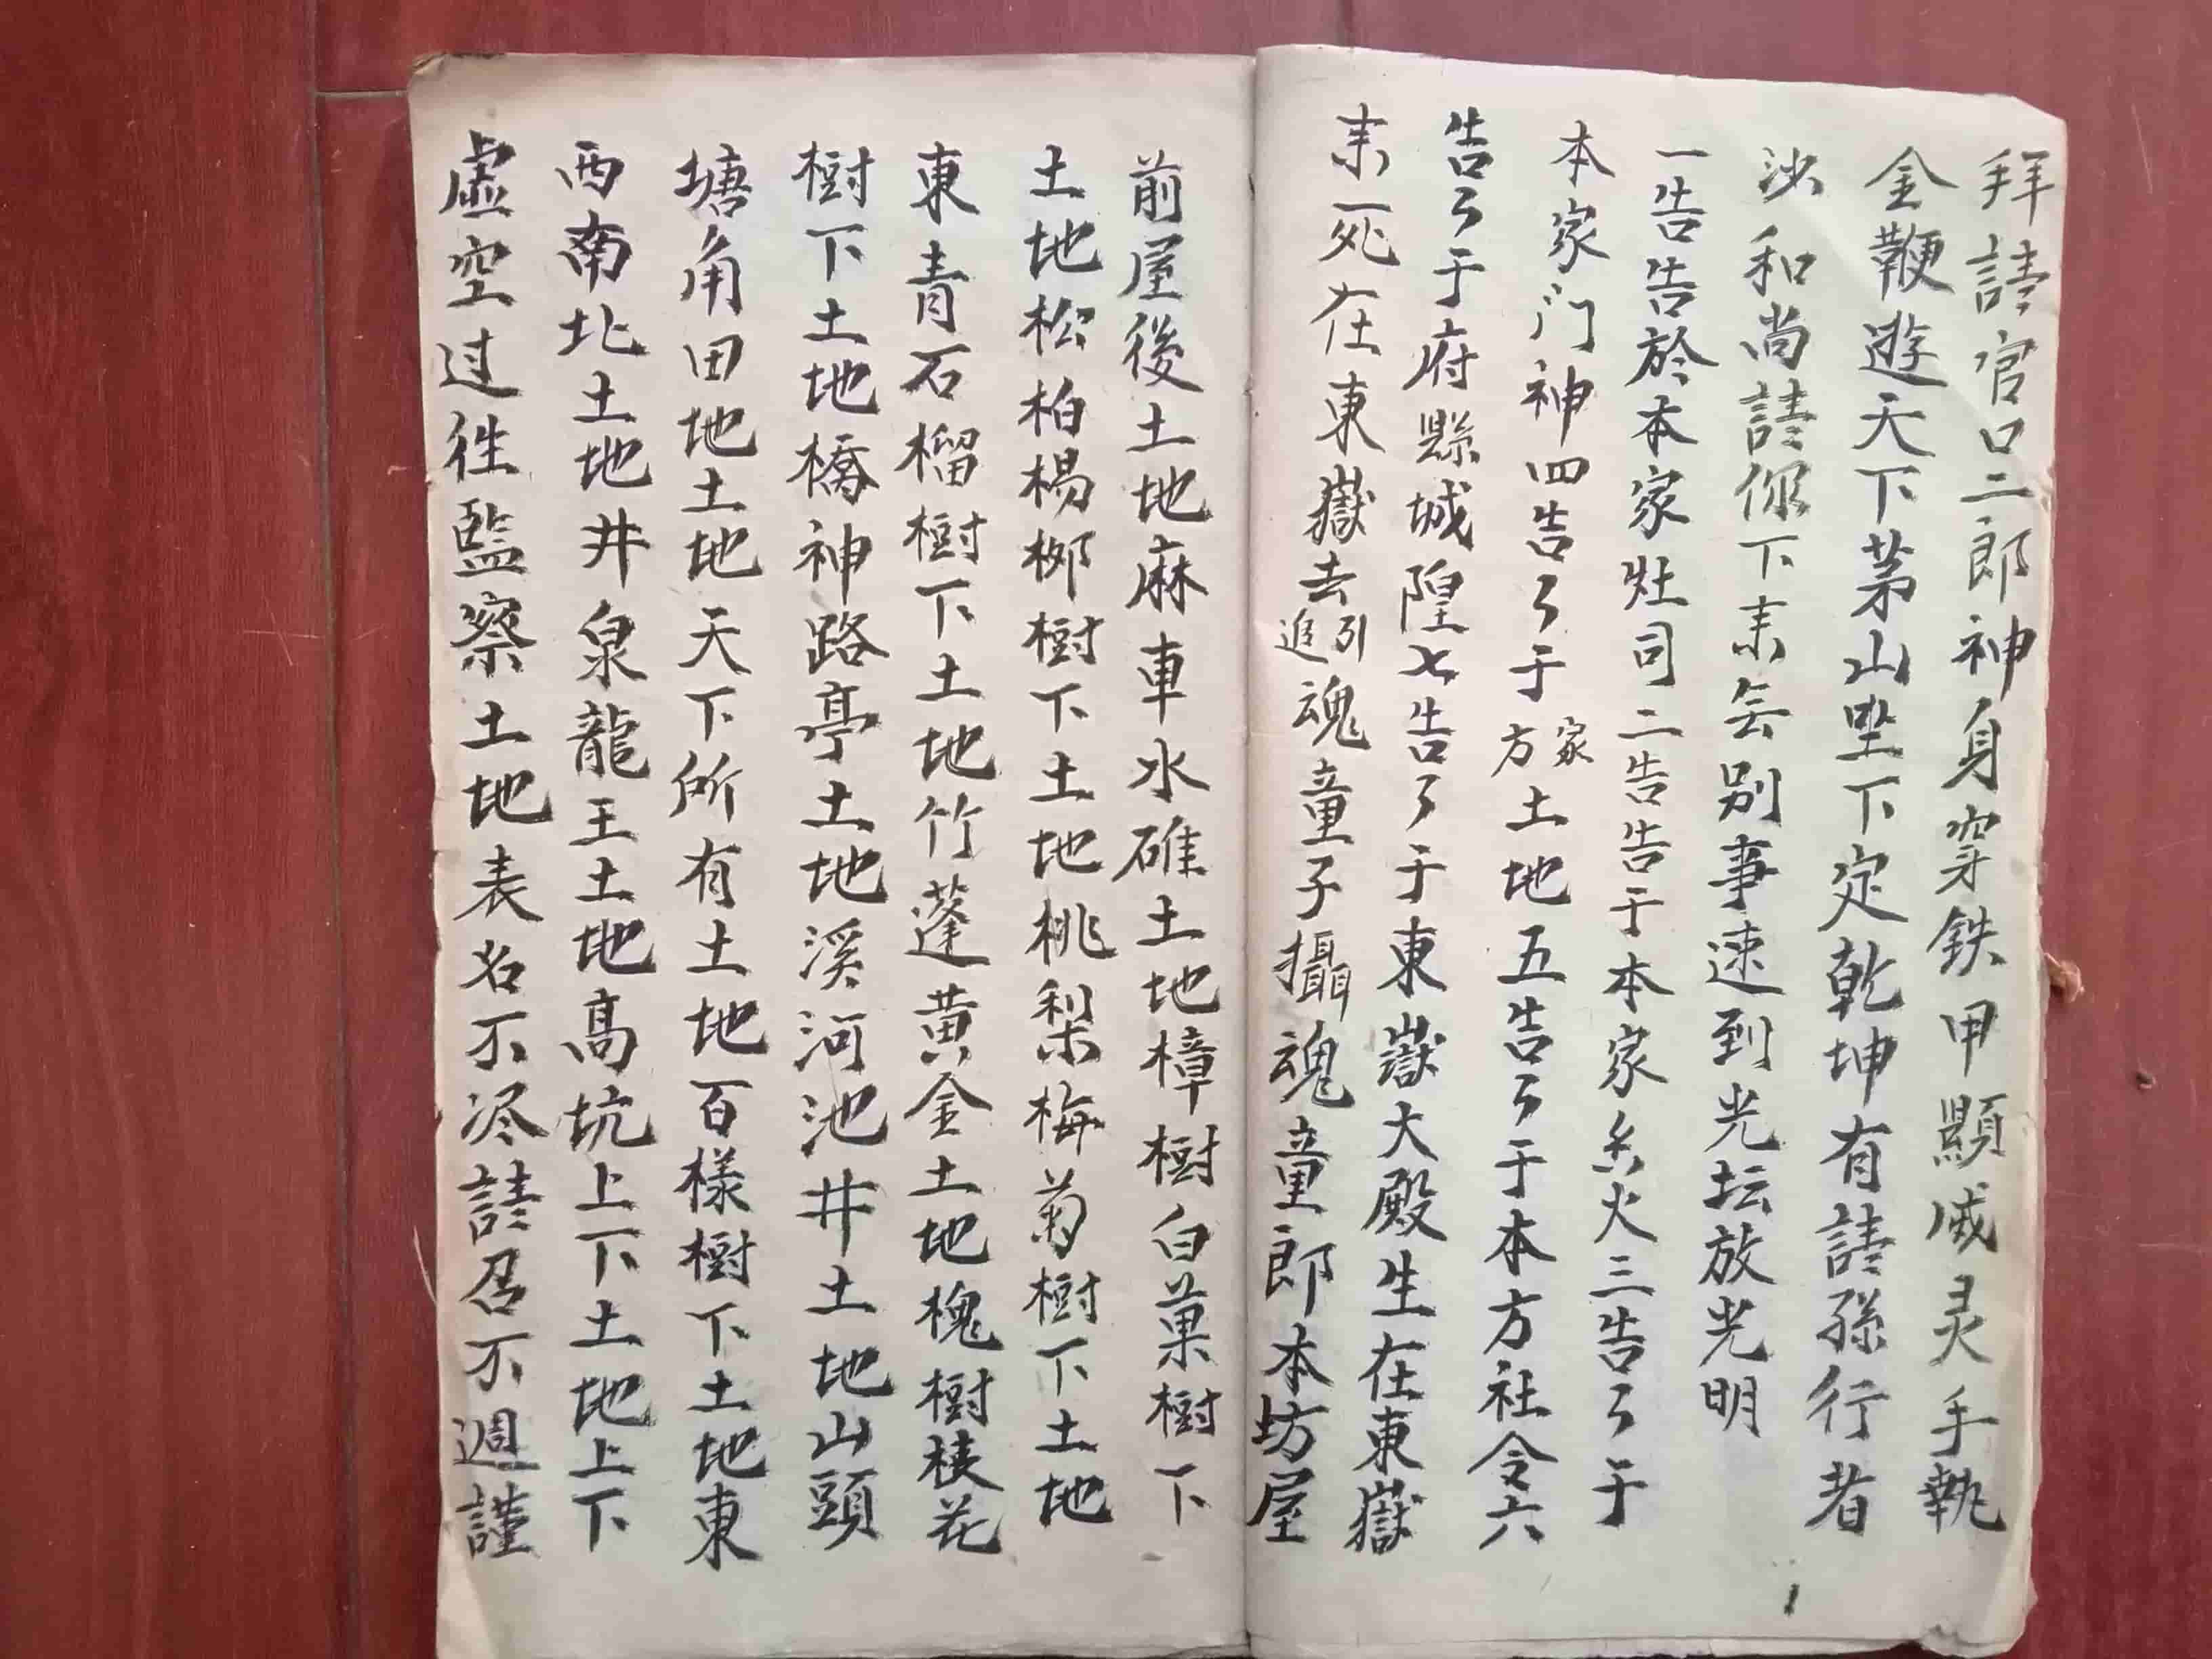 拜請官口二郎神身穿鉄甲顯威灵手執
金鞭遊天下茅山坐下定乾坤有請孫行者
沙和尚請你下来無別事速到光坛放光明
一告告於本家灶司二告告于本家火三告々于
本家门神四告々于家方土地五告々于本方社令六
告々于府縣城隍七告々于東嶽大殿生在東嶽
来死在東嶽去引進魂童子攝魂童郎本坊屋
前屋後土地麻車水碓土地樟樹白菓樹下
土地松柏楊柳樹下土地桃梨梅菊樹下土地
東青石榴樹下土地竹蓬黄金土地槐樹桂花
樹下土地橋神路亭土地溪河池井土地山頭
塘角田地土地天下所有土地百樣樹下土地東
西南北土地井泉龍王土地高坑上下土地上下
虛空过往監察土地表名不尽請召不週謹